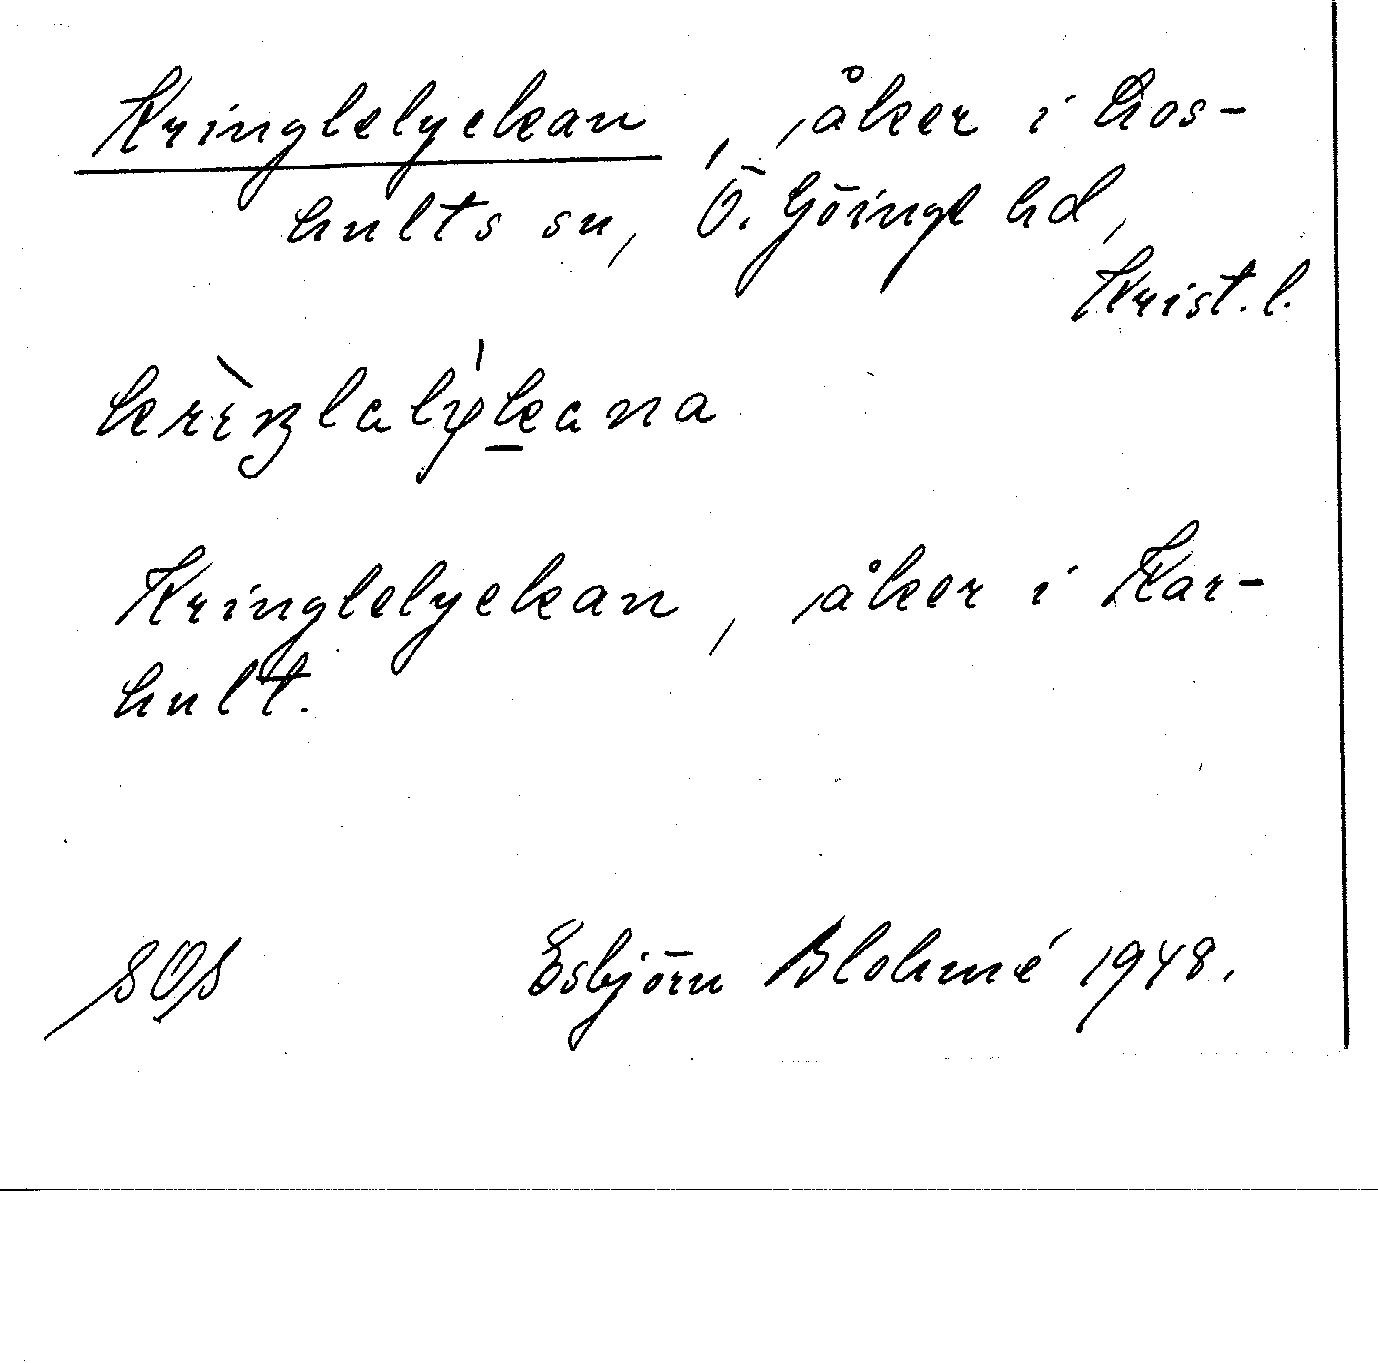 Kringlelyckan, åker i Los-
hults sn, Ö. Göinge hd,
Krist. l.
krìŋlalýkana
Kringlelyckan, åker i Kar-
hult.
SOS Esbjörn Blohmé 1948.